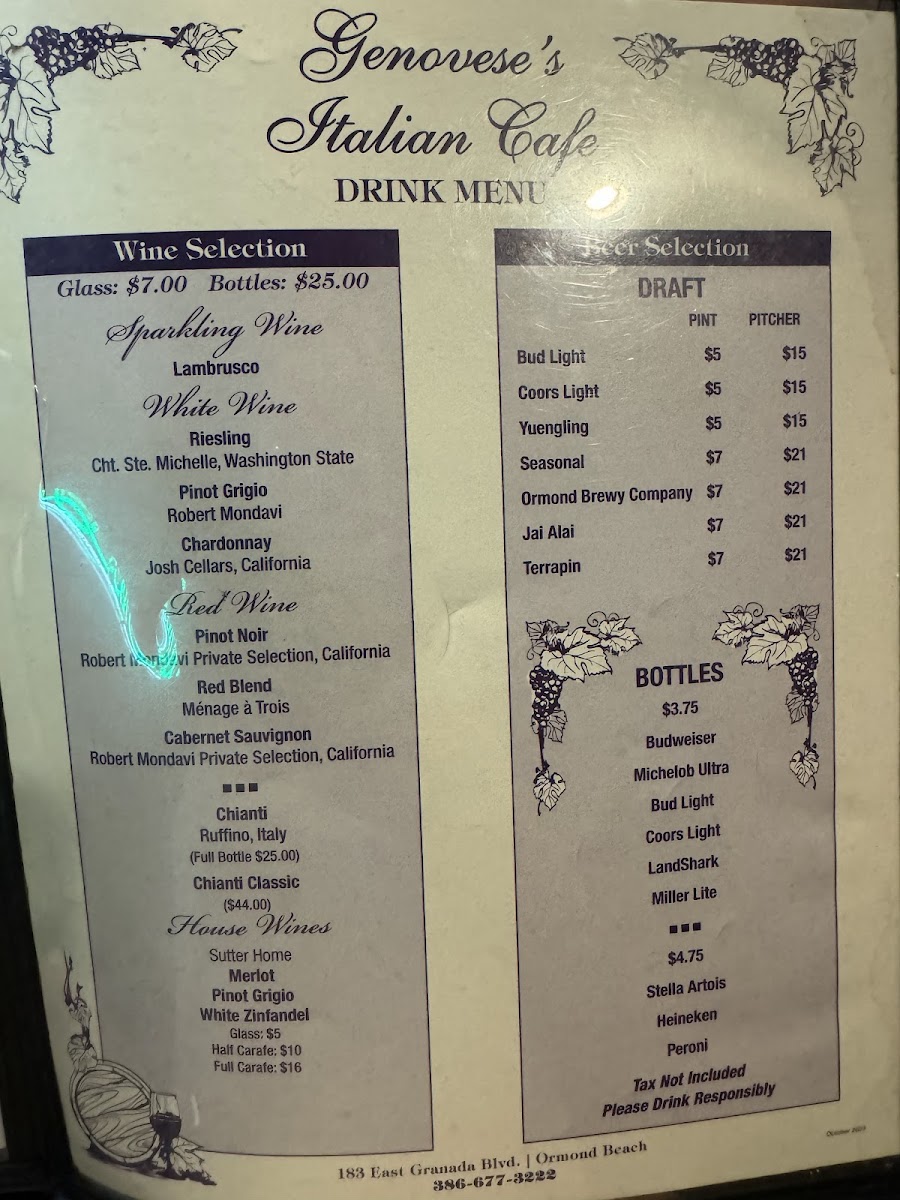 Genovese's
Italian Cafe
DRINK MENU
Wine Selection
Glass: $7.00 Bottles: $25.00
Sparkling Wine
Lambrusco
White Wine
Riesling
Cht. Ste. Michelle, Washington State
Pinot Grigio
Robert Mondavi
Chardonnay
Josh Cellars, California
Red Wine
Pinot Noir
Robert Mondavi Private Selection, California
Red Blend
Ménage à Trois
Cabernet Sauvignon
Robert Mondavi Private Selection, California
Chianti
Ruffino, Italy
(Full Bottle $25.00)
Chianti Classic
($44.00)
House Wines
Sutter Home
Merlot
Pinot Grigio
White Zinfandel
Glass: $5
Half Carafe: $10
Full Carafe: $16
Beer Selection
DRAFT
PINT PITCHER
Bud Light $5 $15
Coors Light $5 $15
Yuengling $5 $15
Seasonal $7 $21
Ormond Brewy Company $7 $21
Jai Alai $7 $21
Terrapin $7 $21
BOTTLES
$3.75
Budweiser
Michelob Ultra
Bud Light
Coors Light
LandShark
Miller Lite
$4.75
Stella Artois
Heineken
Peroni
Tax Not Included
Please Drink Responsibly
October
183 East Granada Blvd. | Ormond Beach
386-677-3222